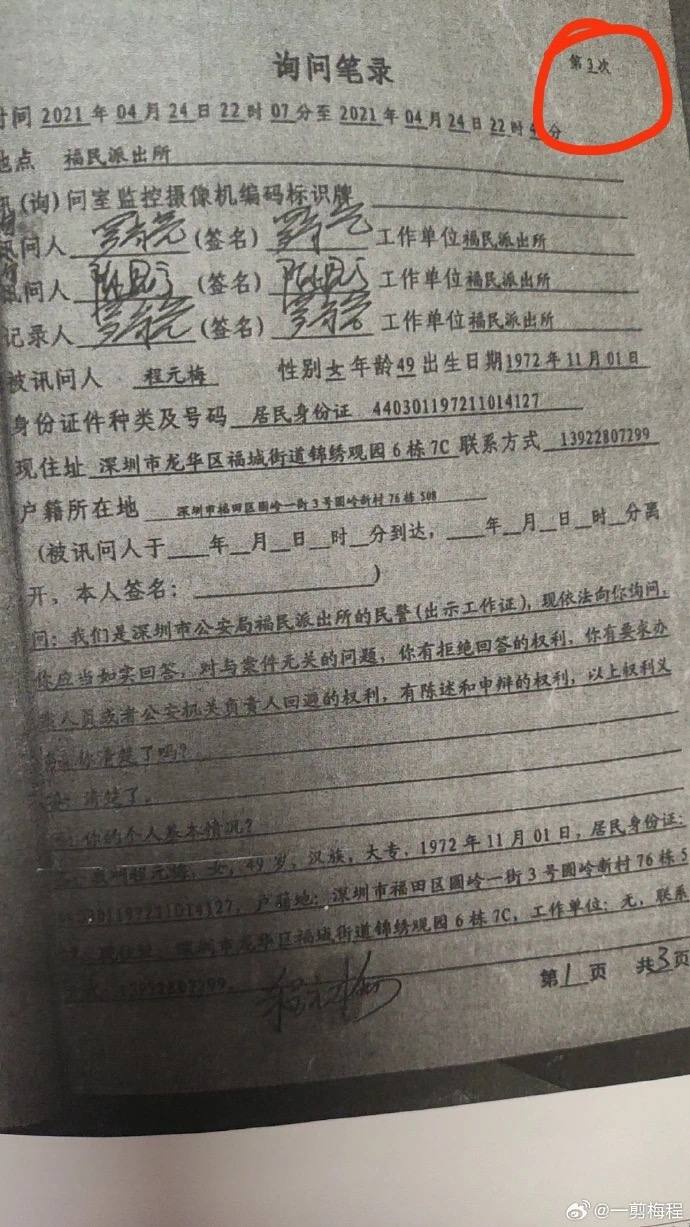 询问笔录
第3次
时间 2021 年 04 月 24 日 22 时 07 分至 2021 年 04 月 24 日 22 时 分
地点 福民派出所
(询)问室监控摄像机编码标识牌
讯问人 (签名) 工作单位福民派出所
讯问人 (签名) 工作单位福民派出所
记录人 (签名) 工作单位福民派出所
被讯问人 程元梅 性别女年龄49出生日期1972 年 11 月 01 日
身份证件种类及号码 居民身份证 440301197211014127
现住址 深圳市龙华区福城街道锦绣观园 6 栋 7C 联系方式 13922807299
户籍所在地 深圳市福田区园岭一街 3 号园岭新村 76 栋 508
(被讯问人于 年 月 日 时 分到达, 年 月 日 时 分离
开、本人签名: )
问:我们是深圳市公安局福民派出所的民警(出示工作证),现依法向你询问,
你应当如实回答,对与案件无关的问题,你有拒绝回答的权利,你有要求办
案人员或者公安机关负责人回避的权利,有陈述和申辩的权利,以上权利义
务,你清楚了吗?
答:清楚了。
问:你的个人基本情况?
程元梅,女,49 岁,汉族,大专,1972 年 11 月 01 日,居民身份证:
440301197211014127,户籍地:深圳市福田区园岭一街 3 号园岭新村 76 栋 5
现住址:深圳市龙华区福城街道锦绣观园 6 栋 7C,工作单位:无,联系
13922807299。
程元梅
第 1 页 共 3 页
@一剪梅程